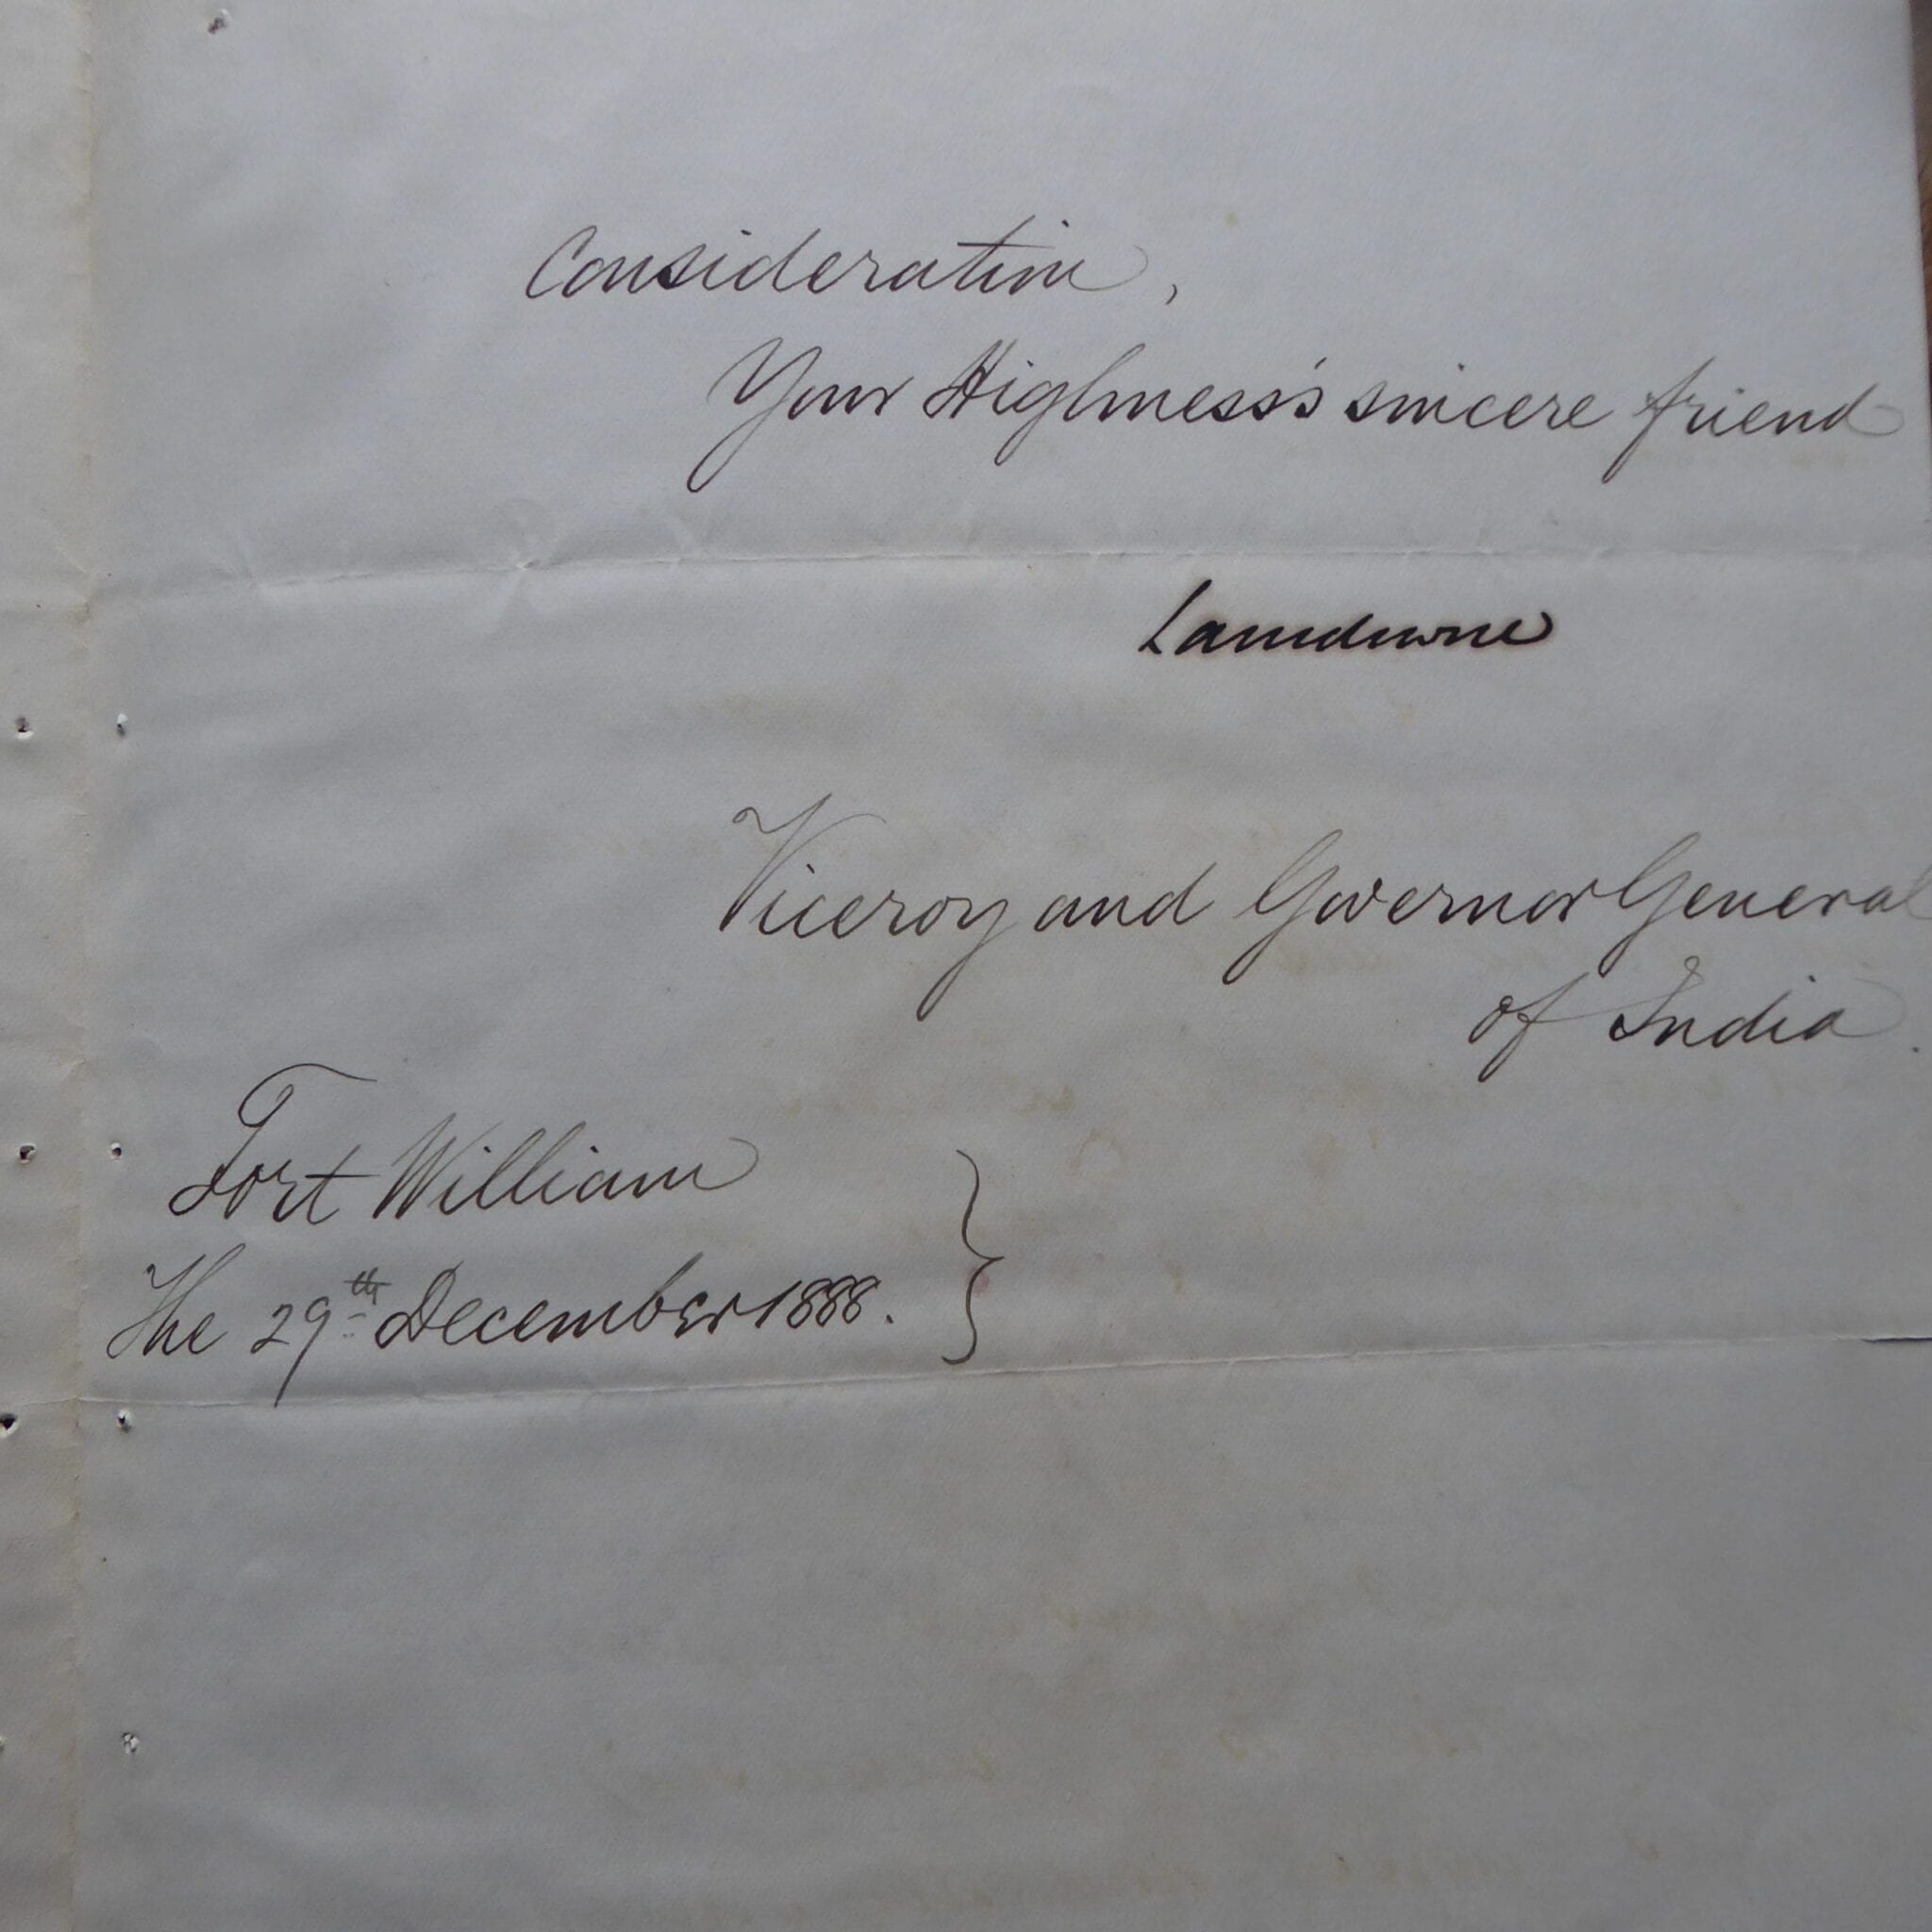 Consideration,
Your Highness's sincere friend
Lansdowne
Viceroy and Governor General
of India.
Fort William
The 29th December 1888.